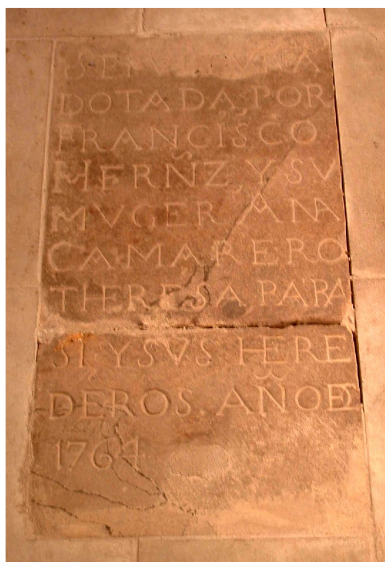 SEPVLTVRA
DOTADA, POR
FRANCISCO
Y SV
MVGER, ANA
CAMARERO
THERESA PARA
SI, Y SVS HERE
DEROS. AÑO DE
1764